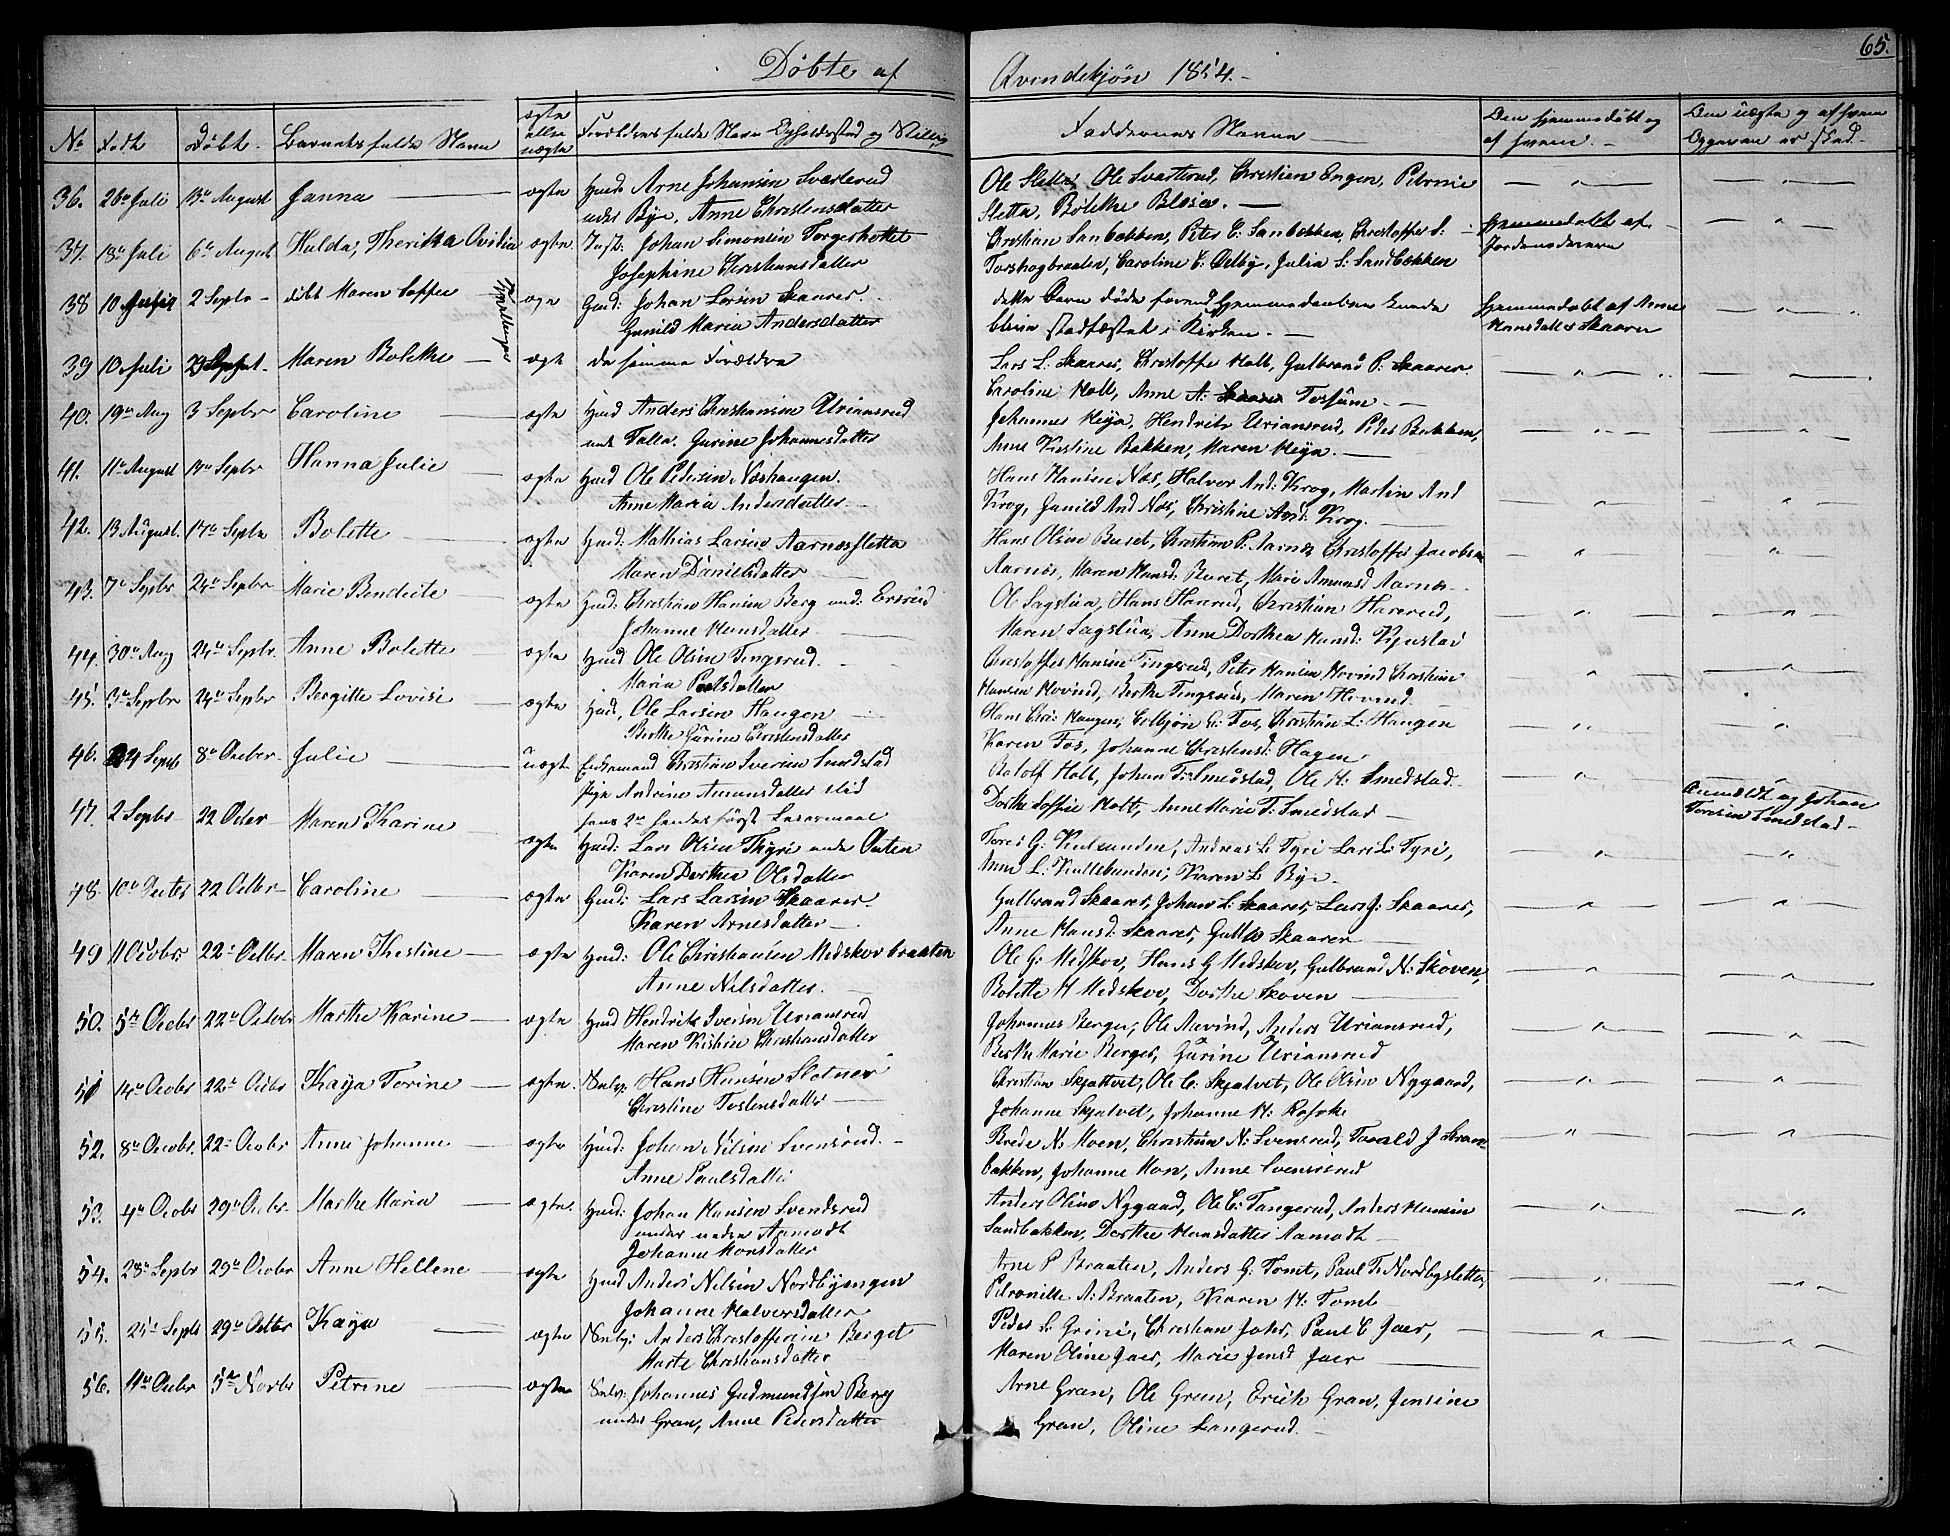 65.
Døbte af
Qvindekjøn 1854.
No Født Døbt Barnets fulde Navn ægte eller uægte Forældrenes fulde Navn Opholdssted og Stilling
Faddernes Navne Den hjemmedøbt og af hvem. Om uægte og af hvem Opgaven er skeed
36. 26de Juli 13de August Janna ægte Husd: Arne Johansen Svarterud
under Bye, Anne Christensdatter
Ole Sletta, Ole Svartterud, Christian Engen, Petronie
Sletta, Bolethe
37. 18de Juli 6te August Hulda, Ovidia ægte Johan Simonsen
Josephine Christiansdatter
Christian Sanbækken, Peter C: Sanbækken, Christoffer S:
Caroline C: Julia S: Sandbækken
Hjemmedøbt af
Jordemoderen
38 10 2 Septbr døbt Maren Soffie ægte Gmd: Johan Larsen Skaarer
Gunild Maria Andersdatter
Tvillinger
dette Barn døde forend Hjemmedaaben kunde
blive stadfæstet i Kirken.
Hjemmedøbt af Anne
Hansdatter Skaarer
39 10 Juli Maren Bolethe ægte de samme Forældre
Lars L: Skaarer, Christoffer Holt, Gulbrand P: Skaarer
Caroline Holt, Anne A:
40. 19de Aug 3 Septbr Caroline ægte Husd Anders Christiansen Uriansrud
under Falla. Gurine Johannesdatter
Johannes Heja, Hendrik Uriansrud, Peder Bakken,
Anne Kirstine Bakken, Maren Heja.
41. 11te August Septbr Hanna Julie ægte Husd Ole Pedersen Næshaugen.
Anne Maria Andersdatter.
Hans Hansen Næs, Halvor And: Krog, Martin And
Krog, Gunild And Næs, Christine And: Krog.
42. 13 August 17de Septbr Bolette ægte Husd: Mathias Larsen Aarnæssletta
Maren Danielsdatter
Hans Olsen Buret, Christian P: Aarnæs Christoffer Jacobsen
Aarnæs, Maren Hansd: Buret, Marie Amunsd Aarnæs.
43. 7de Septbr 24de Septbr Marie Bendicte ægte Husd: Christian Hansen Berg und: Ersrud
Johanne Hansdatter
Ole Sagstua, Hans Harerud, Christian Harerud,
Maren Sagstua, Anne Dorthea Hansd:
44. 30te Aug 24de Septbr. Anne Bolette ægte Husd Ole Olsen Tingsrud.
Maria Poulsdatter
Christoffer Hansen Tingsrud, Peter Hansen Hovind Christian
Hansen Hovind, Berthe Tingsrud, Maren Hovind
45. 3de Septbr 24de Septbr Bergitte Lovise ægte Husd, Ole Larsen Haugen
Berthe Gurine Christensdatter
Hans Chri: Haugen, Colbjøn G: Fos, Christian L: Haugen
Karen Fos, Johanne Christensd: Hagen
46. 24 Septb 8de Octbr Julie uægte Enkemand Christian Iversen Smedstad
Pige Andrine Amunsdatter ibid
hans 2de hendes først Leiermaal
Rolf Holt, Johan T: Smedstad, Ole H: Smedstad.
Dorthe Soffie Holt, Anne Marie T: Smedstad
Anmeldt og Johan
Toresen Smedstad
47. 2 Septbr 22 Octbr Maren Karine ægte Husd: Lars Olsen Thyri under Outen
Karen Dorthea Olsdatter
Tores G: Andreas L: Tyri Lars L: Tyri,
Anne L: Karen L Bye.
48. 10de 22 Octbr Caroline ægte Gmd: Lars Larsen Skaarer
Karen Arnesdatter
Gulbrand Skaarer, Johan L: Skaarer, Lars J: Skaarer,
Anne Hansd: Skaarer, Skaarer
49 11 Octbr 22de Octbr. Maren Kjestine ægte Husd: Ole Christiansen Midskovbraaten
Anne Nilsdatter.
Ole G: Midskov, Hans G Midskov, Gulbrand N: Skoven,
Bolette H Midskov, Dorthe Skoven
50. 5te Octbr 22de Octobr Marthe Karine ægte Husd Hendrik Iversen Uriansrud
Maren Kistine Christiansdatter
Johannes Berger, Ole Anders Uriansrud,
Berthe Marie Berger, Gurine Uriansrud
51 14de Octbr 22de Octbr Kaja Torine ægte. Selv: Hans Hansen Slotner
Christine Tostensdatter
Christian Skjatvet, Ole C: Skjatvet, Ole Olsen Nygaard,
Johanne Skjatvet, Johanne H:
52. 8de Octbr. 22de Octbr Anne Johanne ægte Husd: Johan Nilsen Svensrud.
Anne Paulsdatter
Brede N: Moen, Christian N: Svensrud,
bakken, Johanne Anne Svensrud
53. 4de Octbr 29de Octbr. Marthe Maria ægte. Husd: Johan Hansen Svendsrud
under Aamodt
Johanne Monsdatter
Anders Olsen Nygaard, Ole C: Tangerud, Anders Hansen
Sandbakken, Dorthe Hansdatter Aamodt
54. 28de Septbr 29de Octbr Anne Hellene ægte Husd Anders Nilsen Nordbyengen
Johanne Halversdatter
Arne P Braaten, Anders G: Tomt, Paul T: Nordbysletta,
Petronille A: Braaten, Karen H: Tomt
55. 25de Septb 29de Octbr Kaja ægte Selv: Anders Christoffersen Berget
Marte Christiansdatter
Peder L: Grini, Christian Paul C Jaer,
Maren Oline Jaer, Marie Jensd Jaer
56. 11te Octbr 5te Novbr Petrine ægte Selv: Johannes Gudmundsen Berg
under Gran, Anne Pedersdatter
Arne Gran, Ole Gran, Erich Gran, Jensine
Gran, Oline Langerud.